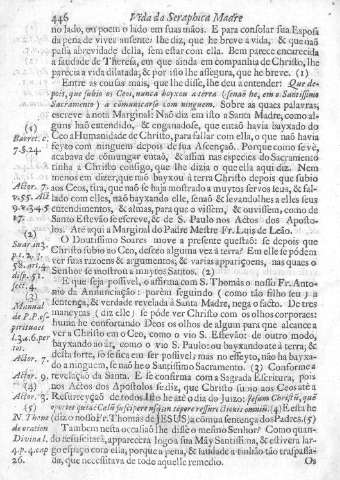 446 Vida da Seraphica Madre
no lado, ou poem o lado em suas mãos. E para consolar sua Esposa
da pena de viver ausente lhe diz, que he breve a vida, & que naõ
passa abrevidade della, sem estar com ella. Bem parece encarecida
a saudade de Theresa, em que ainda em companhia de Christo, lhe
parecia a vida dilatada; & por isso lhe assegura, que he breve. (1)
Entre as cousas mais, que lhe disse, lhe deu a entender: Que de-
pois, que subio ao Ceo, nunca bayxou a terra (senaõ he, em o Santissimo
Sacramento) á cõmunicarse com ninguem. Sobre as quaes palavras,
escreve à nota Marginal: Naõ diz em isto a Santa Madre, como al-
guns haõ entendido, & enganadose, que entaõ havia bayxado do
Ceo a Humanidade de Christo, para fallar com ella, o que naõ havia
feyto com ninguem depois de sua Ascençaõ. Porque como se vê,
acabava de cõmungar entaõ, & assim nas especies do Sacramento
tinha a Christo comsigo, que lhe dizia o que ella aqui diz. Nem
menos em dizer, que naõ bayxou à terra Christo depois que subio
aos Ceos, tira, que naõ se haja mostrado a muytos servos seus, & fal-
lado com elles, naõ bayxando elle, senaõ & levandolhes a elles seus
entendimentos, & almas, para que o vissem, & ouvissem, como de
Santo Estevaõ se escreve, & de S. Paulo nos Actos dos Aposto-
los. Até aqui a Marginal do Padre Mestre Fr. Luis de Leão.
O Doutissimo Soares move a presente questaõ: se depois que
Christo subio ao Ceo, desceo alguma vez à terra? Em elle se podem
ver suas razoens & argumentos, & varias appariçoens, nas quaes o
Senhor se mostrou a muytos Santos. (2)
E que seja possivel, o affirma com S. Thomás o nosso Fr. Anto-
nio da Annunciação: porèm segundo (como tão filho seu) a
sentença, & verdade revelada à Santa Madre, nega o facto. De tres
maneyras (diz elle) se póde ver Christo com os olhos corporaes:
huma he confortando Deos os olhos de algum para que alcance a
ver a Christo em o Ceo, como o vio S. Estevaõ: de outro modo,
bayxando ao ár, como o vio S. Paulo: ou bayxando até a terra; &
desta sorte, fo seria em ser possivel, mas no effeyto, naõ ha bayxa-
do a ninguem, se naõ he o Santissimo Sacramento. (3) Conforme a
revelação da Santa. E se confirma com a Sagrada Escritura, pois
nos Actos dos Apostolos se diz, que Christo subio aos Ceos até a
Resurreyção de todos. Isto he até o dia do Juizo:
(4) E esta he
(diz o nosso Fr. Thomas de JESUS) a cõmua sentença dos Padres. (5)
Tambem nesta occasiaõ lhe disse o mesmo Senhor: Como quan-
do resuscitára, apparecera logo a sua Mãy Santissima, & estivera lar-
go espaço com ella, porque a pena, & saudade a tinhão tão traspassa-
da, que necessitava de todo aquelle remedio. Os
(1)
7. §. 24.
Actor. 7.
17.
(2)
(3)
Manual
Actor. 7.
Actor. 9.
(4)
Actor. 3.
(5)
N. Thom
de oration
Divina l.
26.